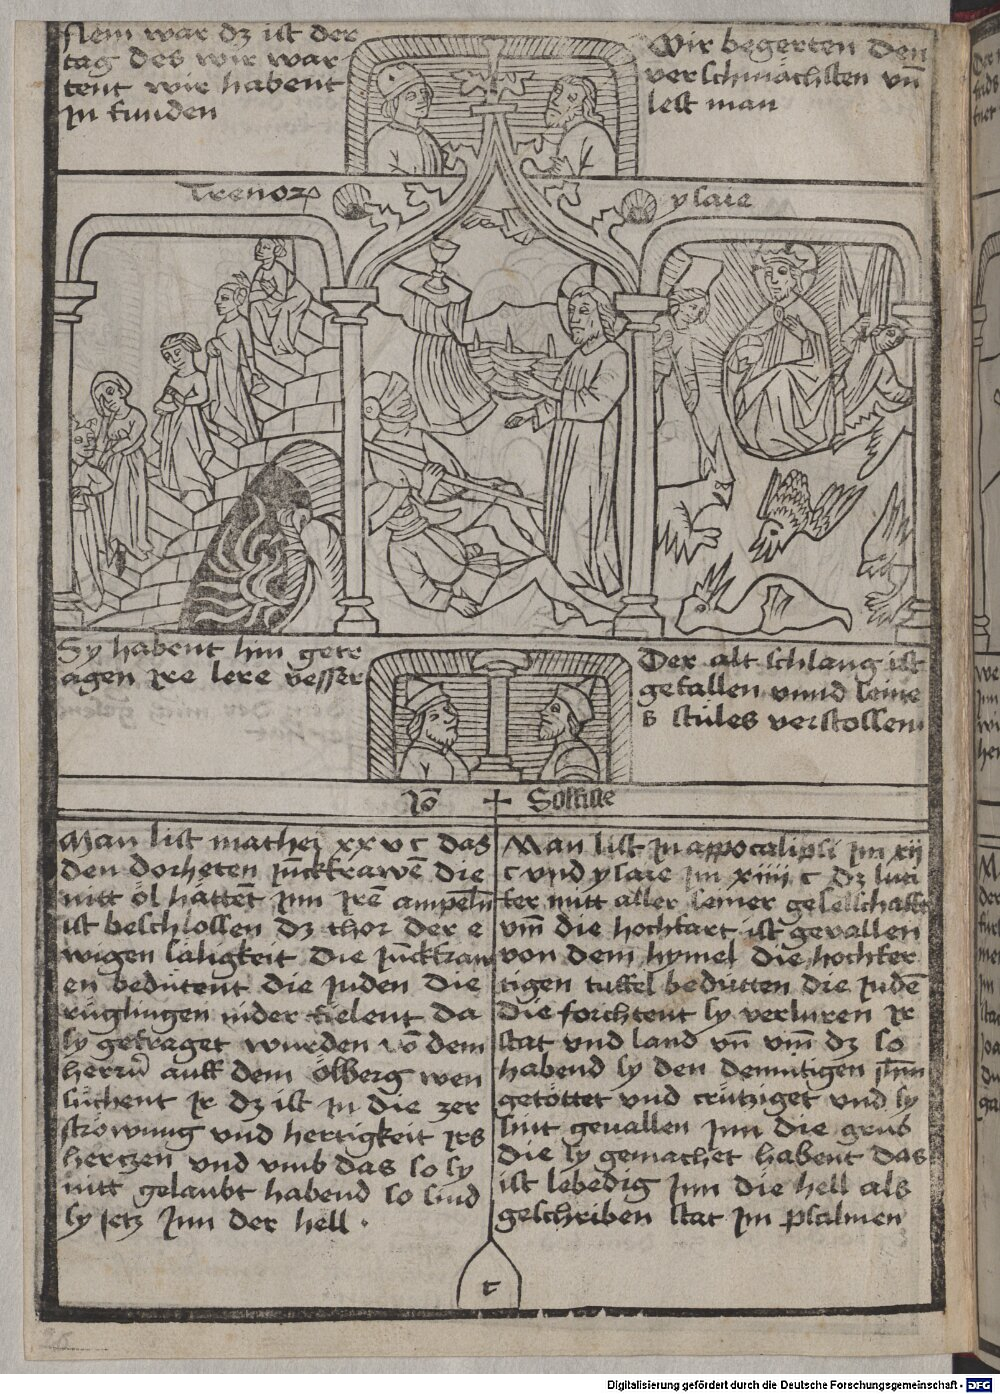 Nem war dz ist der
tag des wir war
tent wir habent
jn funden
Wir begerten den
verschmächsten vn̄
lest man
Trenorū
ysaie
Sy habent hin getr
agen ire lere vesser
Der alt schlang ist
gefallen vnnd seine
s stůles verstossen
+
Man list mathei xxv c das
den dorheten jūckfrawē die
nitt öl hattēt jnn jrē ampeln
ist beschlossen dz thor der e
wigen säligkeit die jūckfraw
en bedütent die juden die
rügglingen nider fielent da
sy gefraget wurden vō dem
herrn auff dem ölberg wen
sůchent jr dz ist in die zer
ströwung vnd hertigkeit jrs
hertzen vnd vmb das so sy
nitt gelaubt habend so sind
sy jetz jnn der hell .
Man list jn appocalipsi jm xij
c vnd ysaie jm xiiij c dz luci
fer mitt aller seiner gesellschafft
vm̄ die hochfart ist gevallen
von dem hymel die hochfer
tigen tuffel bedütten die judē
die forchtent sy verluren jr
stat vnd land vn̄ vm̄ dz so
habend sy den demütigen jhm
getöttet vnd crütziget vnd sy
sint gevallen jnn die grub
die sy gemachet habent das
ist lebedig jnn die hell als
geschriben stat jm psalmen
c
26
Digitalisierung gefördert durch die Deutsche Forschungsgemeinschaft - DFG